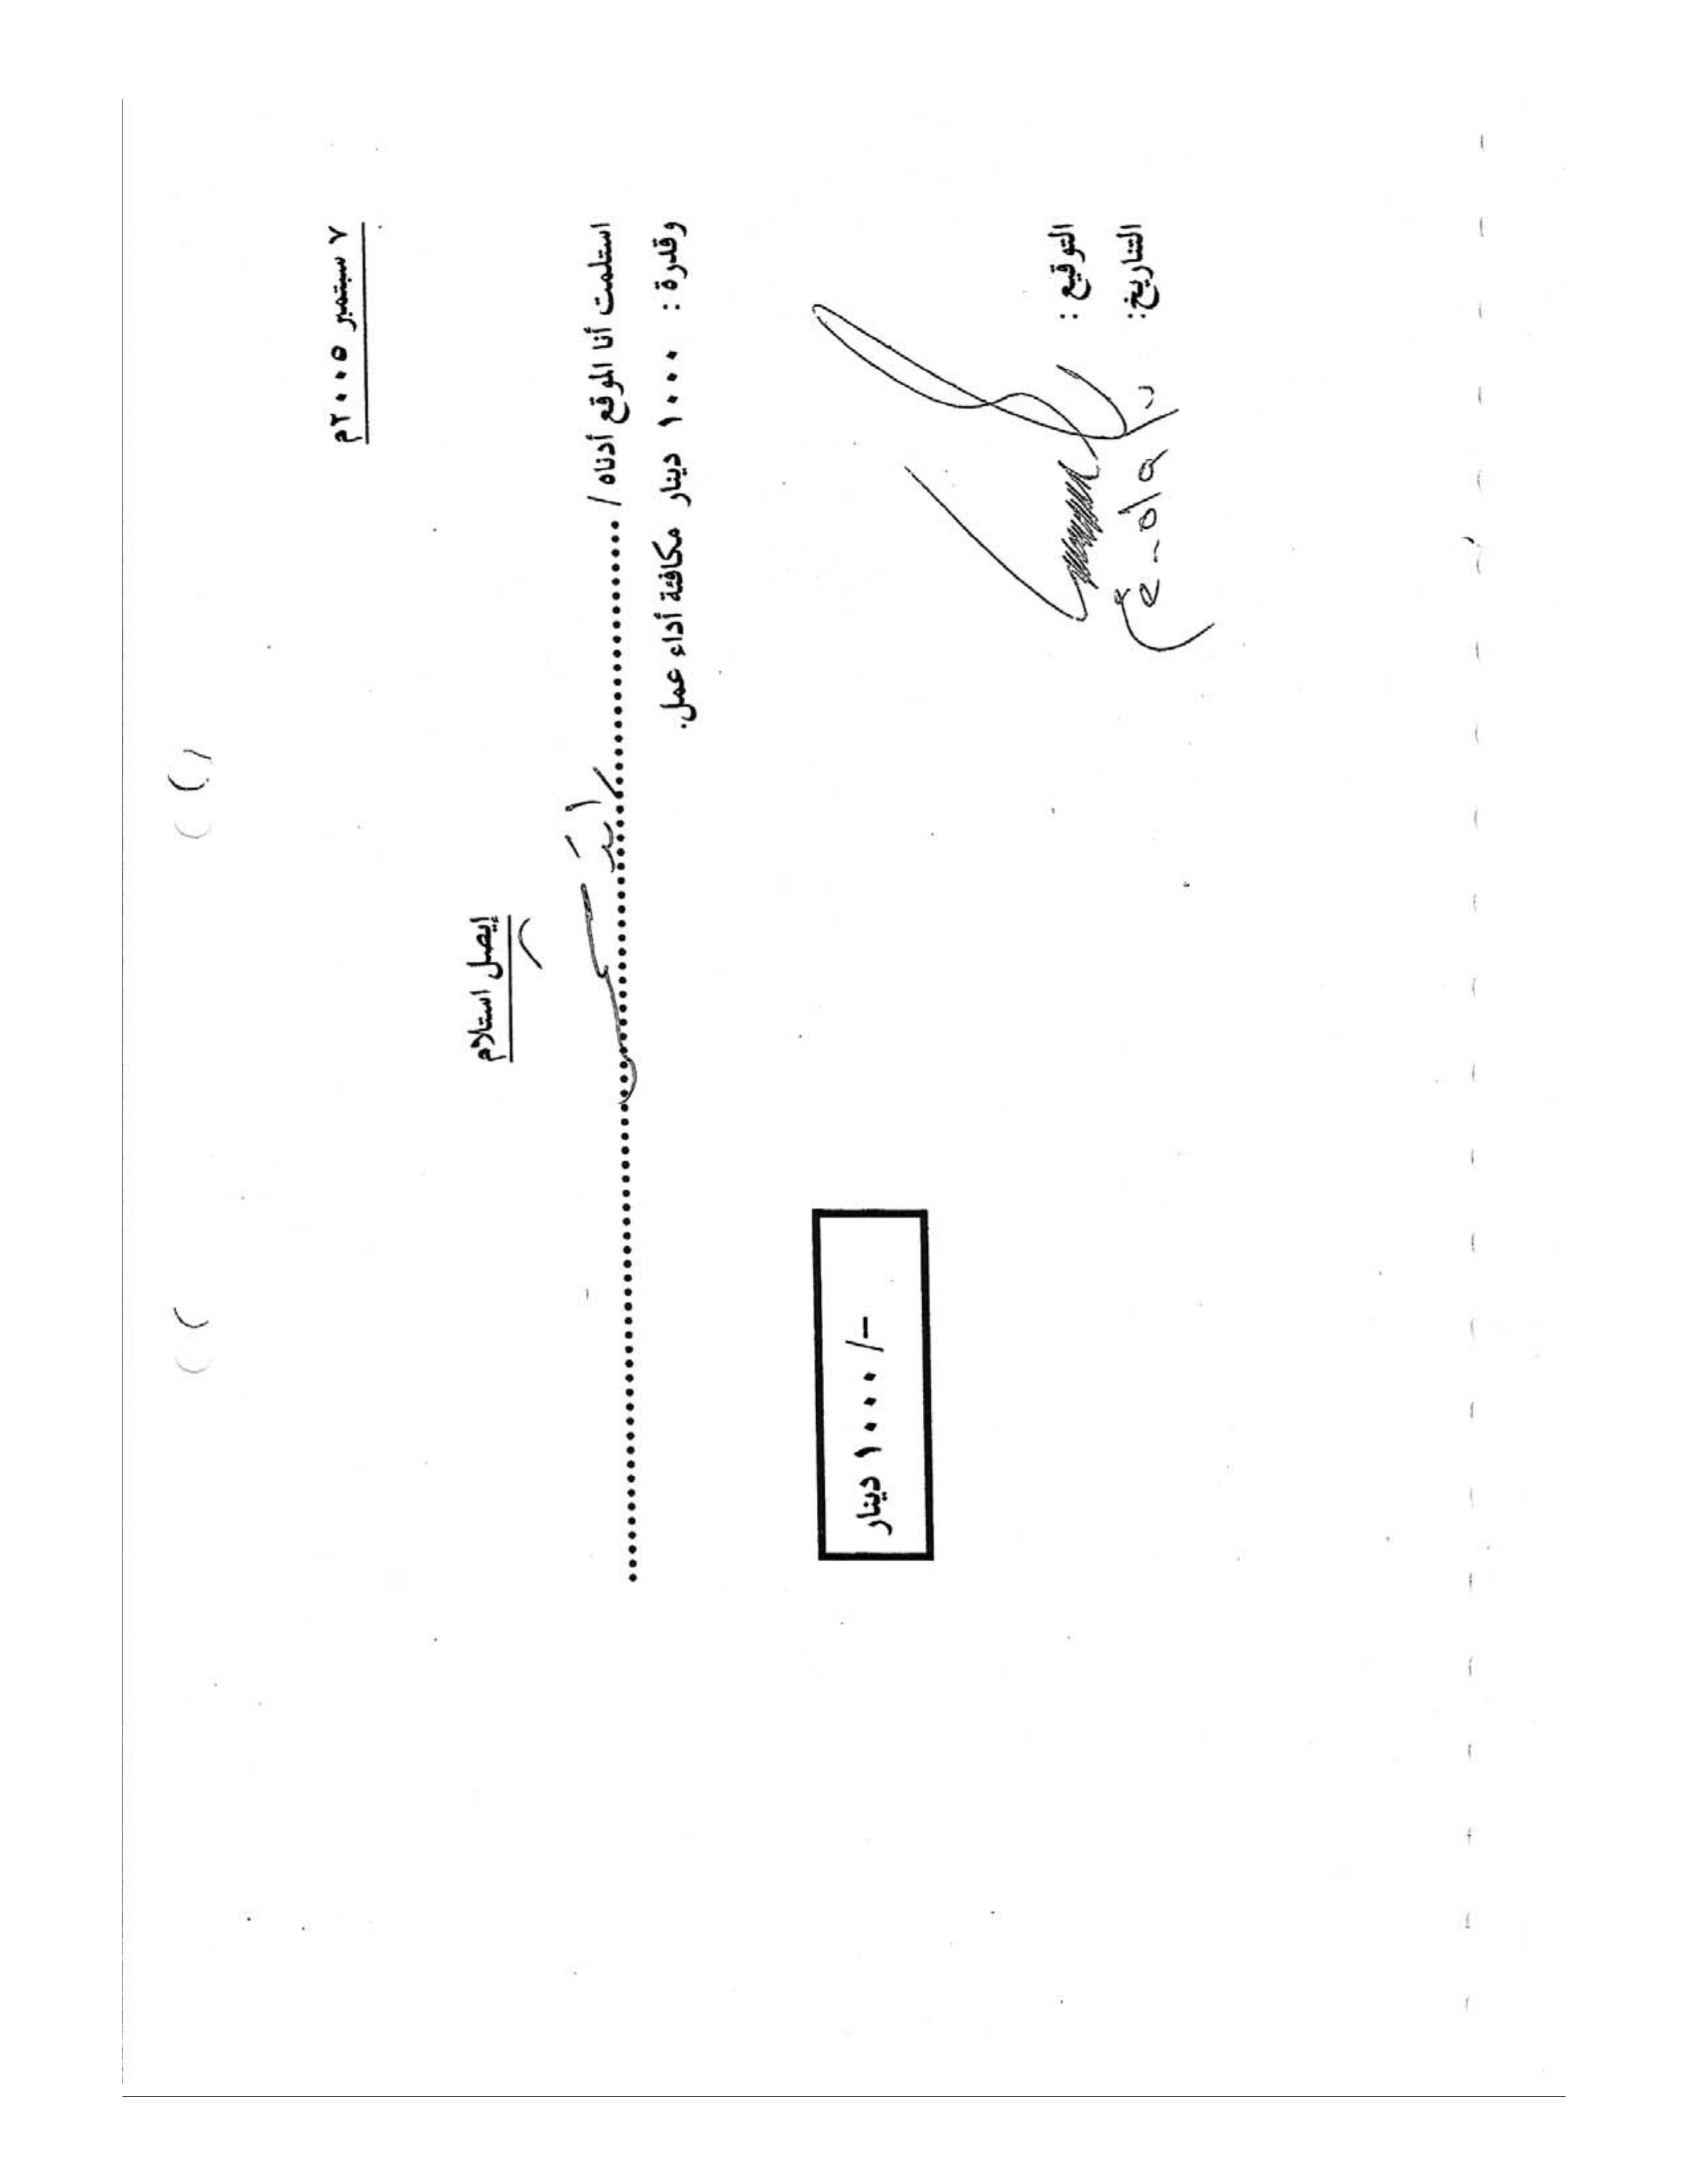 ٧ سبتمبر ٢٠٠٥م
إيصل استلام
استلمت أنا الموقع أدناه / ........................................................................
وقدرة : ١٠٠٠ دينار مكافئة أداء عمل.
١٠٠٠ دينار /-
التوقيع :
التاريخ: